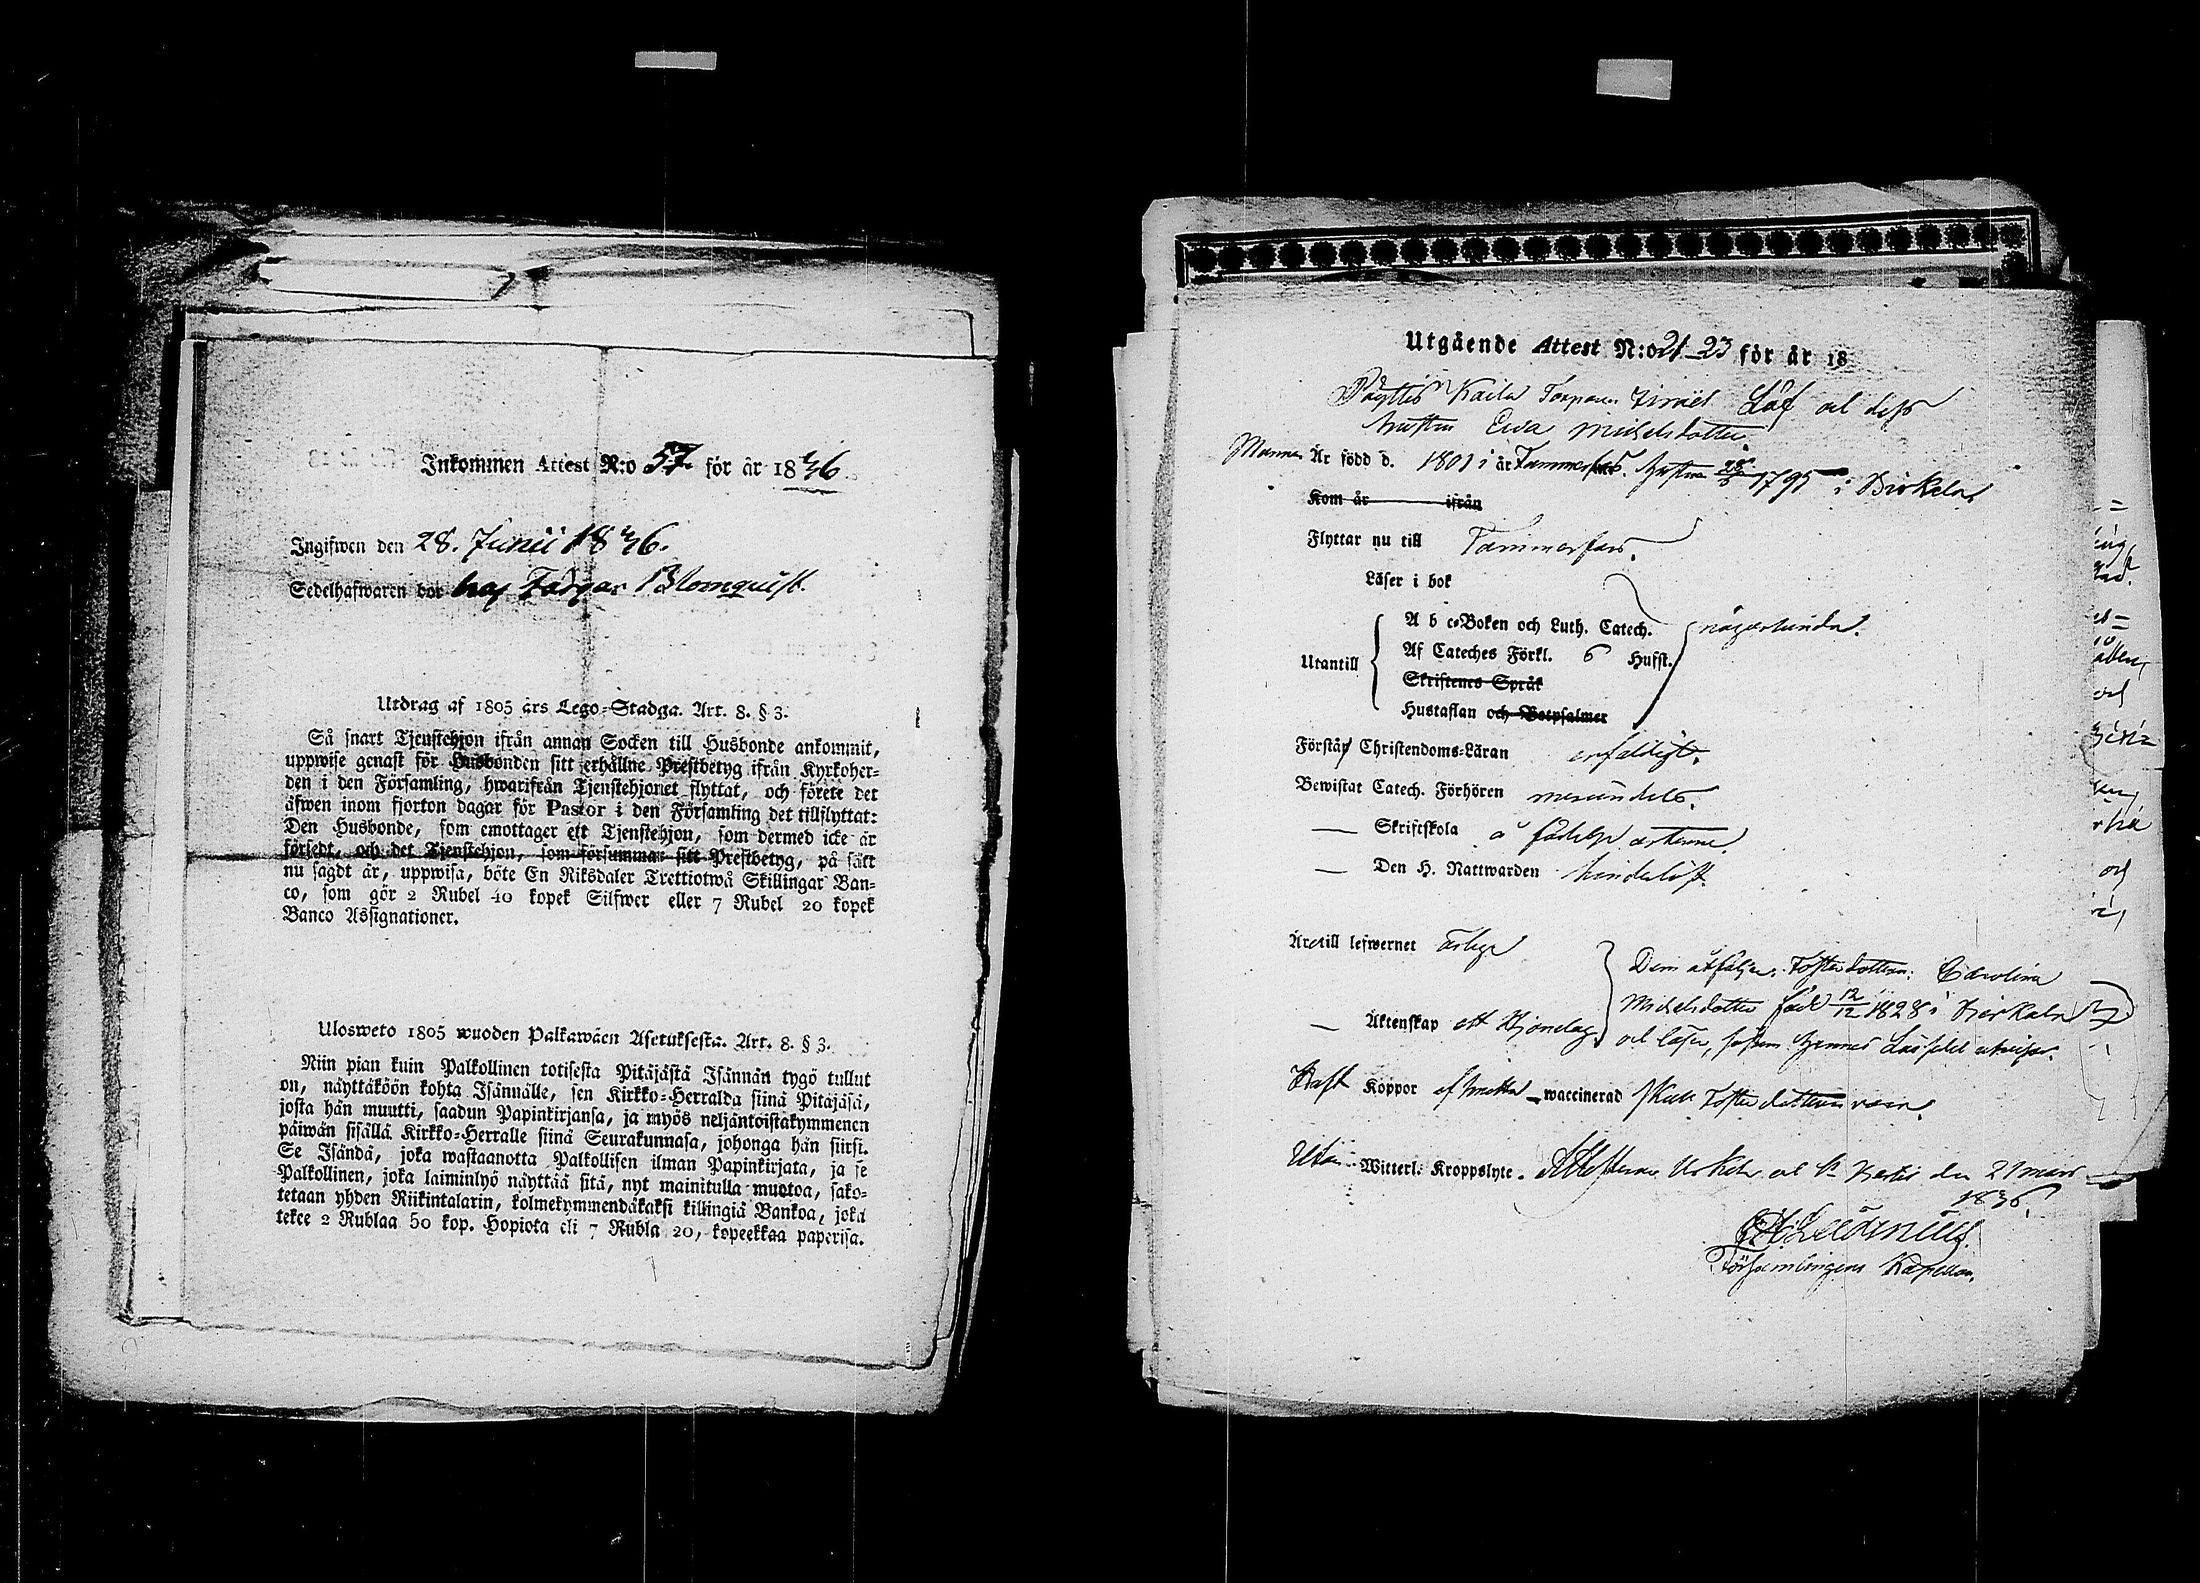 Inkommen Attest N:o 57. för år 1836.
Ingifwen den 28. Junii 1836.
Sedelhafwaren bor hos Färgar Blomquist.
Utdrag af 1805 års Lego-Stadga. Art. 8. § 3.
Så snart Tjenstehjon ifrån annan Socken till Husbonde ankommit,
uppwise genast för Husbonden sitt erhållne Prestbetyg ifrån Kyrkoher-
den i den Församling, hwarifrån Tjenstehjonet flyttat, och förete det
äfwen inom fjorton dagar för Pastor i den Församling det tillflyttat:
Den Husbonde, som emottager ett Tjenstehjon, som dermed icke är
försedt, och det Tjenstehjon, som försummar sitt Prestbetyg, på sätt
nu sagdt är, uppwisa, böte En Riksdaler Trettiotwå Skillingar Ban-
co, som gör 2 Rubel 40 kopek Silfwer eller 7 Rubel 20 kopek
Banco Assignationer.
Ulosweto 1805 wuoden Palkawäen Asetuksesta. Art. 8. § 3.
Niin pian kuin Palkollinen toisesta Pitäjästä Isännän tygö tullut
on, näyttäköön kohta Isännälle, sen Kirkko-Herralda siinä Pitäjäsä,
josta hän muutti, saadun Papinkirjansa, ja myös neljäntoistakymmenen
päiwän sisällä Kirkko-Herralle siinä Seurakunnasa, johonga hän siirsi.
Se Isändä, joka wastaanotta Palkollisen ilman Papinkirjata, ja se
Palkollinen, joka laiminlyö näyttää sitä, nyt mainitulla muotoa, sako-
tetaan yhden Riikintalarin, kolmekymmendäkaksi killingiä Bankoa, joka
tekee 2 Rublaa 50 kop. Hopiota eli 7 Rubla 20, kopeekkaa paperisa.
Utgående Attest N:o 21_23 för år 18
Påyttis Kaila Torparen Israel Löf och dess
hustru Ewa Michelsdotter.
Mannen Är född d. 1801 i är Tammerfors. Hustrun 1795 i Birkala
Kom år ifrån
Flyttar nu till Tammerfors.
Läser i bok
Utantill
A b c-Boken och Luth. Catech.
Af Cateches Förkl. 6 Hufst.
någorlunda.
Skriftenes Språk
Hustaflan och Botpsalmer
Förstår Christendoms-Läran enfaldigt.
Bewistat Catech. Förhören
— Skriftskola
— Den H. Nattwarden hinderlöst
Äro till lefwernet ärlige
— Äktenskap ett Hjonelag
Dem åtföljer: Fosterdottren: Carolina
Michelsdotter född 12/12 1828 i Birkala
och läser, såsom hennes Läsesedel utwisar.
Haft Koppor waccinerad skall Fosterdottren vara.
Utan Witterl. Kroppslyte. den 21 mars
1836.
Församlingens Kapellan.